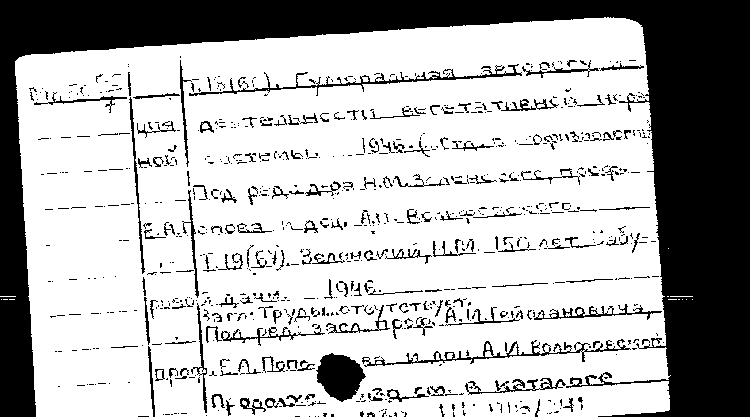 Т.18(66). Гуморальная авторегуля-
ция деятельности вегетативной нерв
ной системы. 1946.
Под ред. д-ра Н.М. Зеленского, проф.
Е.А. Попова и доц. А.И. Вольфовского.
Т.19(67). Зеленский, Н.М. 150 лет Сабу-
ровой дачи. 1946.
Загл: Труды...отсутствует.
Под ред. засл. проф. А.И. Геймановича,
проф. Е.А. Попова и доц. А.И. Вольфовской
см. в каталоге